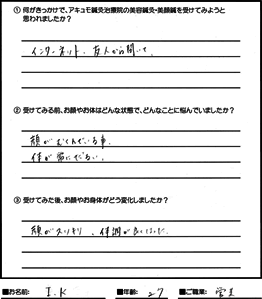 ① 何がきっかけで、アキュモ鍼灸治療院の美容鍼灸・美顔鍼を受けてみようと
思われましたか？
インターネット、友人から聞いて。
② 受けてみる前、お顔やお体はどんな状態で、どんなことに悩んでいましたか？
顔がむくんでいる事。
体が常にだるい。
③ 受けてみた後、お顔やお身体がどう変化しましたか？
顔がスッキリ、体調が良くなった。
■お名前: I.K ■年齢: 27 ■ご職業: